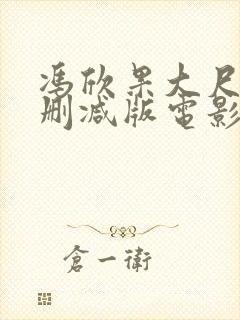 馮欣果大尺
刪減版電影
倉一衛